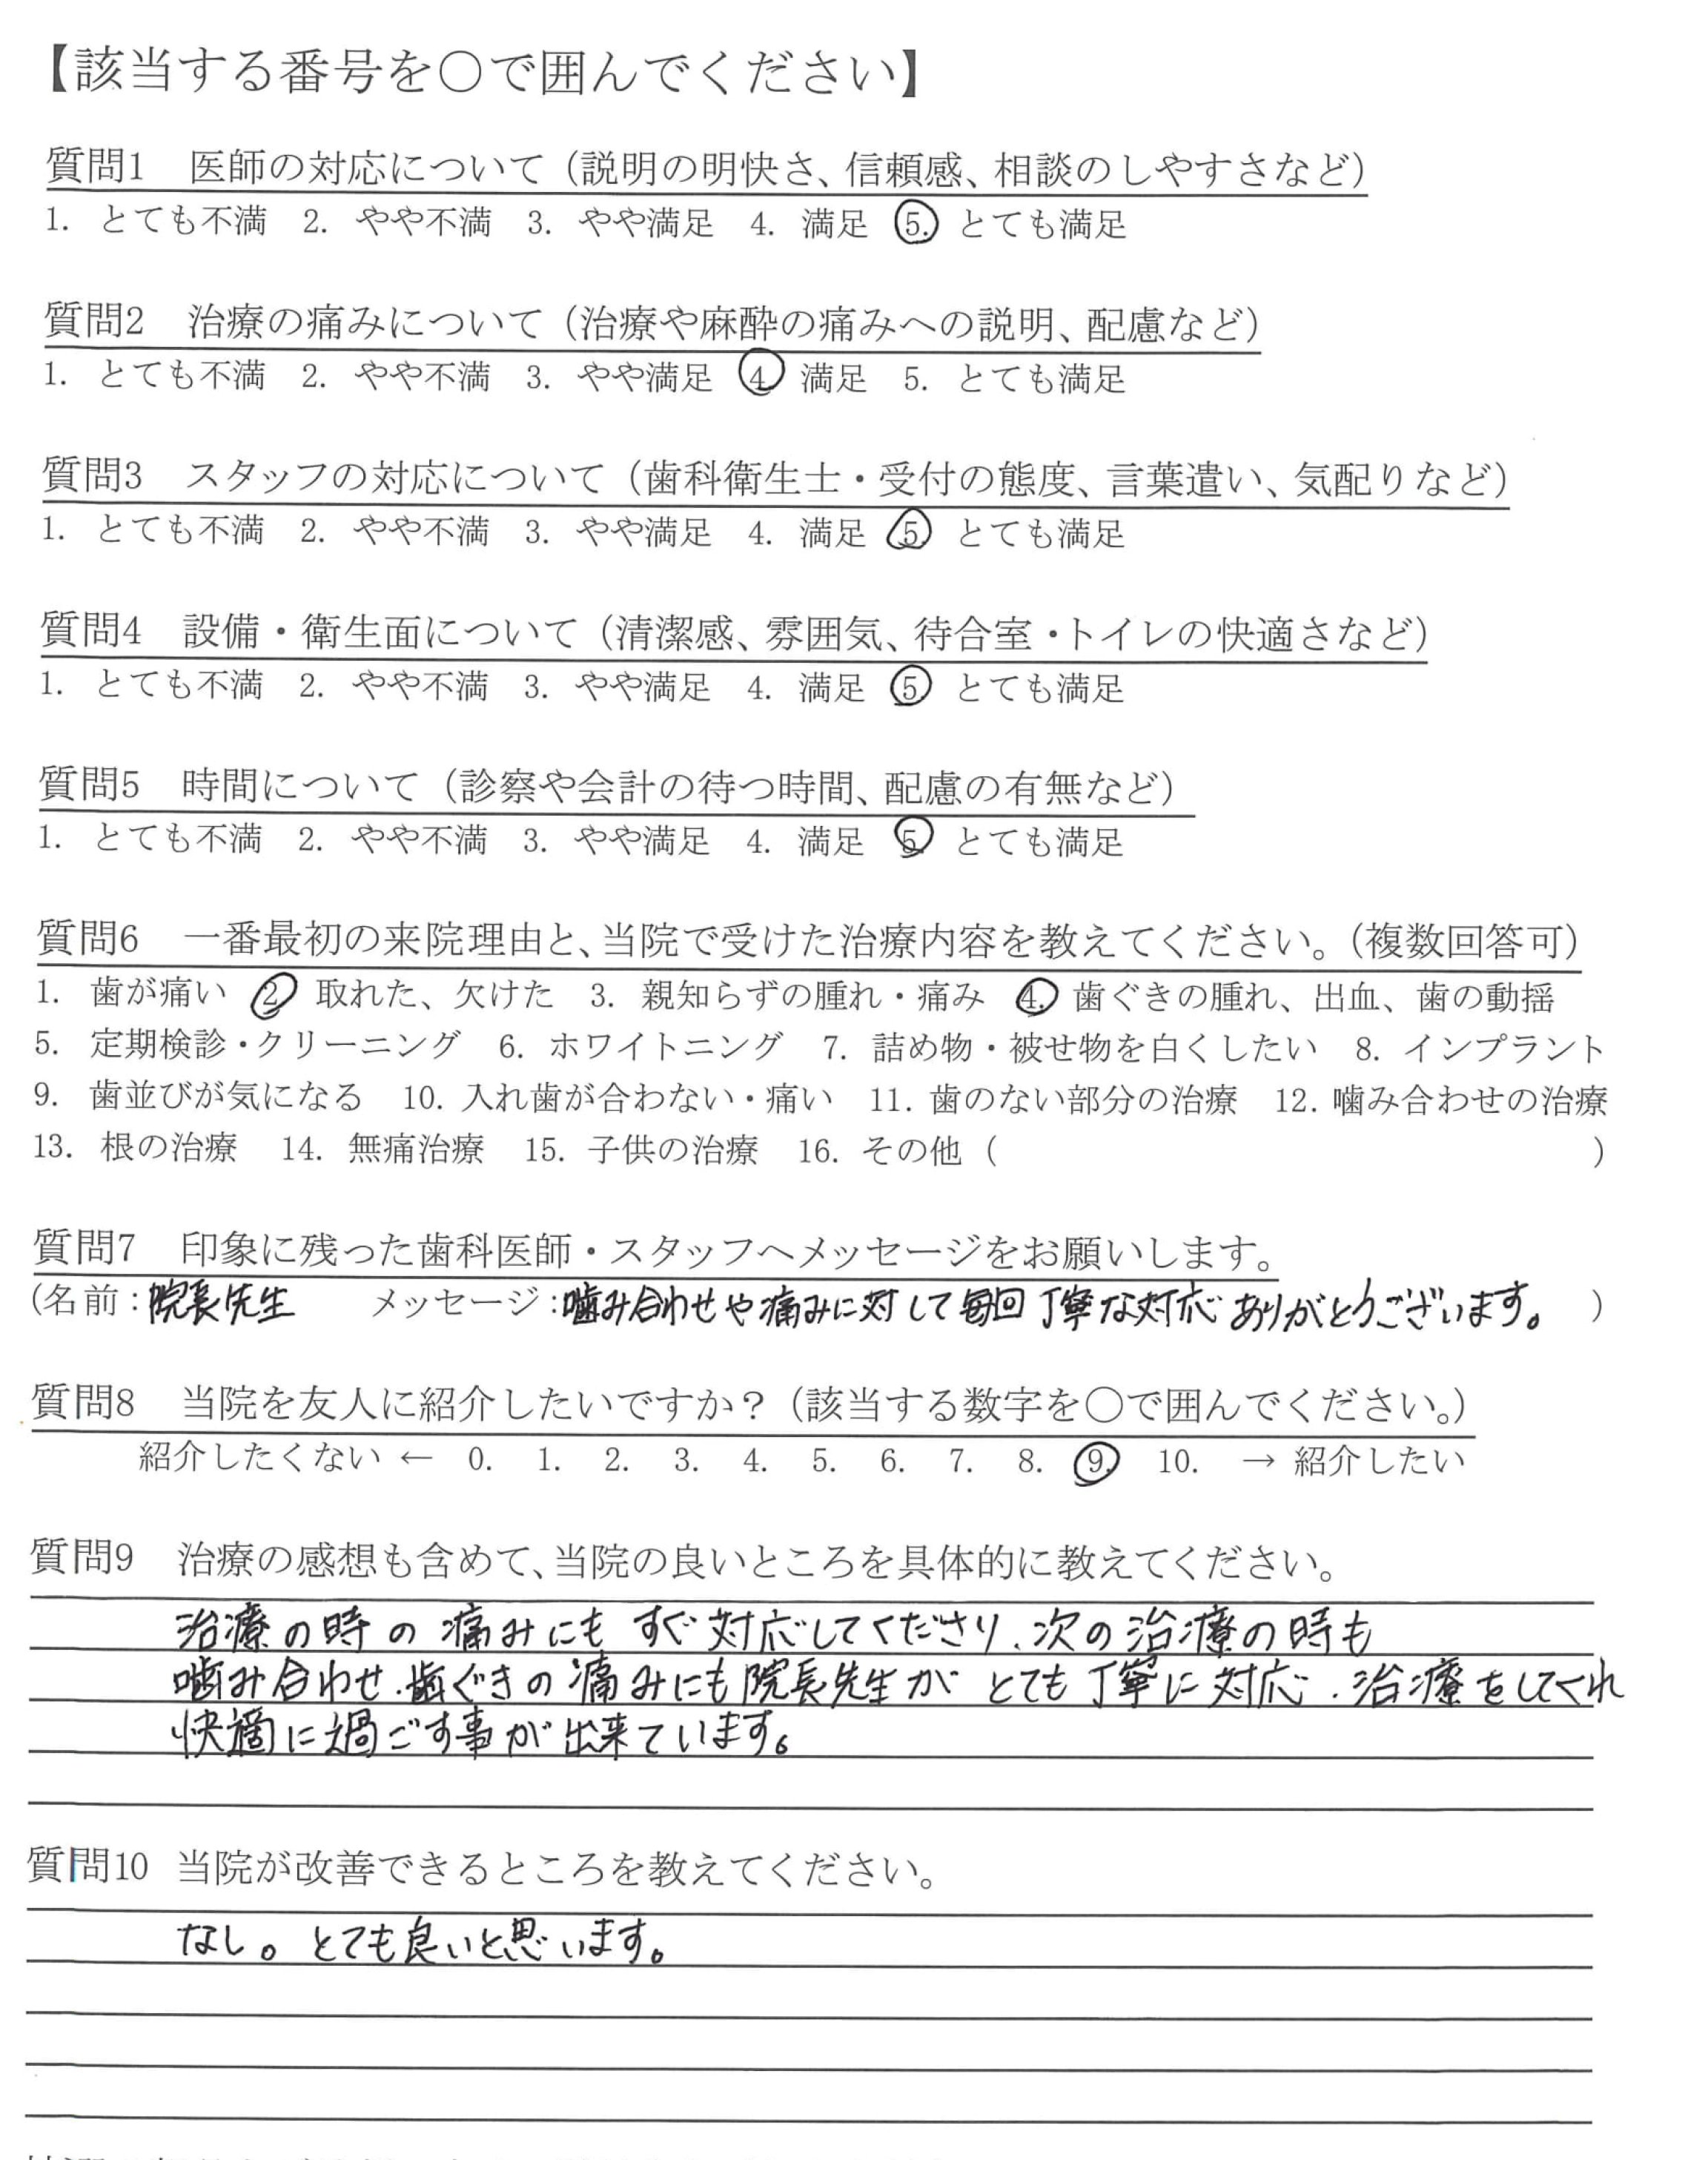 【該当する番号を○で囲んでください】
質問1　医師の対応について（説明の明快さ、信頼感、相談のしやすさなど）
1. とても不満　2. やや不満　3. やや満足　4. 満足　5. とても満足
質問2　治療の痛みについて（治療や麻酔の痛みへの説明、配慮など）
1. とても不満　2. やや不満　3. やや満足　4. 満足　5. とても満足
質問3　スタッフの対応について（歯科衛生士・受付の態度、言葉遣い、気配りなど）
1. とても不満　2. やや不満　3. やや満足　4. 満足　5. とても満足
質問4　設備・衛生面について（清潔感、雰囲気、待合室・トイレの快適さなど）
1. とても不満　2. やや不満　3. やや満足　4. 満足　5. とても満足
質問5　時間について（診察や会計の待つ時間、配慮の有無など）
1. とても不満　2. やや不満　3. やや満足　4. 満足　5. とても満足
質問6　一番最初の来院理由と、当院で受けた治療内容を教えてください。（複数回答可）
1. 歯が痛い　2. 取れた、欠けた　3. 親知らずの腫れ・痛み　4. 歯ぐきの腫れ、出血、歯の動揺
5. 定期検診・クリーニング　6. ホワイトニング　7. 詰め物・被せ物を白くしたい　8. インプラント
9. 歯並びが気になる　10. 入れ歯が合わない・痛い　11. 歯のない部分の治療　12. 噛み合わせの治療
13. 根の治療　14. 無痛治療　15. 子供の治療　16. その他（　　　）
質問7　印象に残った歯科医師・スタッフへメッセージをお願いします。
（名前：院長先生　メッセージ：噛み合わせや痛みに対して毎回丁寧な対応ありがとうございます。　）
質問8　当院を友人に紹介したいですか？（該当する数字を○で囲んでください。）
紹介したくない ← 0. 1. 2. 3. 4. 5. 6. 7. 8. 9. 10. → 紹介したい
質問9　治療の感想も含めて、当院の良いところを具体的に教えてください。
治療の時の痛みにもすぐ対応してくださり、次の治療の時も
噛み合わせ、歯ぐきの痛みにも院長先生がとても丁寧に対応、治療をしてくれ
快適に過ごす事が出来ています。
質問10　当院が改善できるところを教えてください。
なし。とても良いと思います。